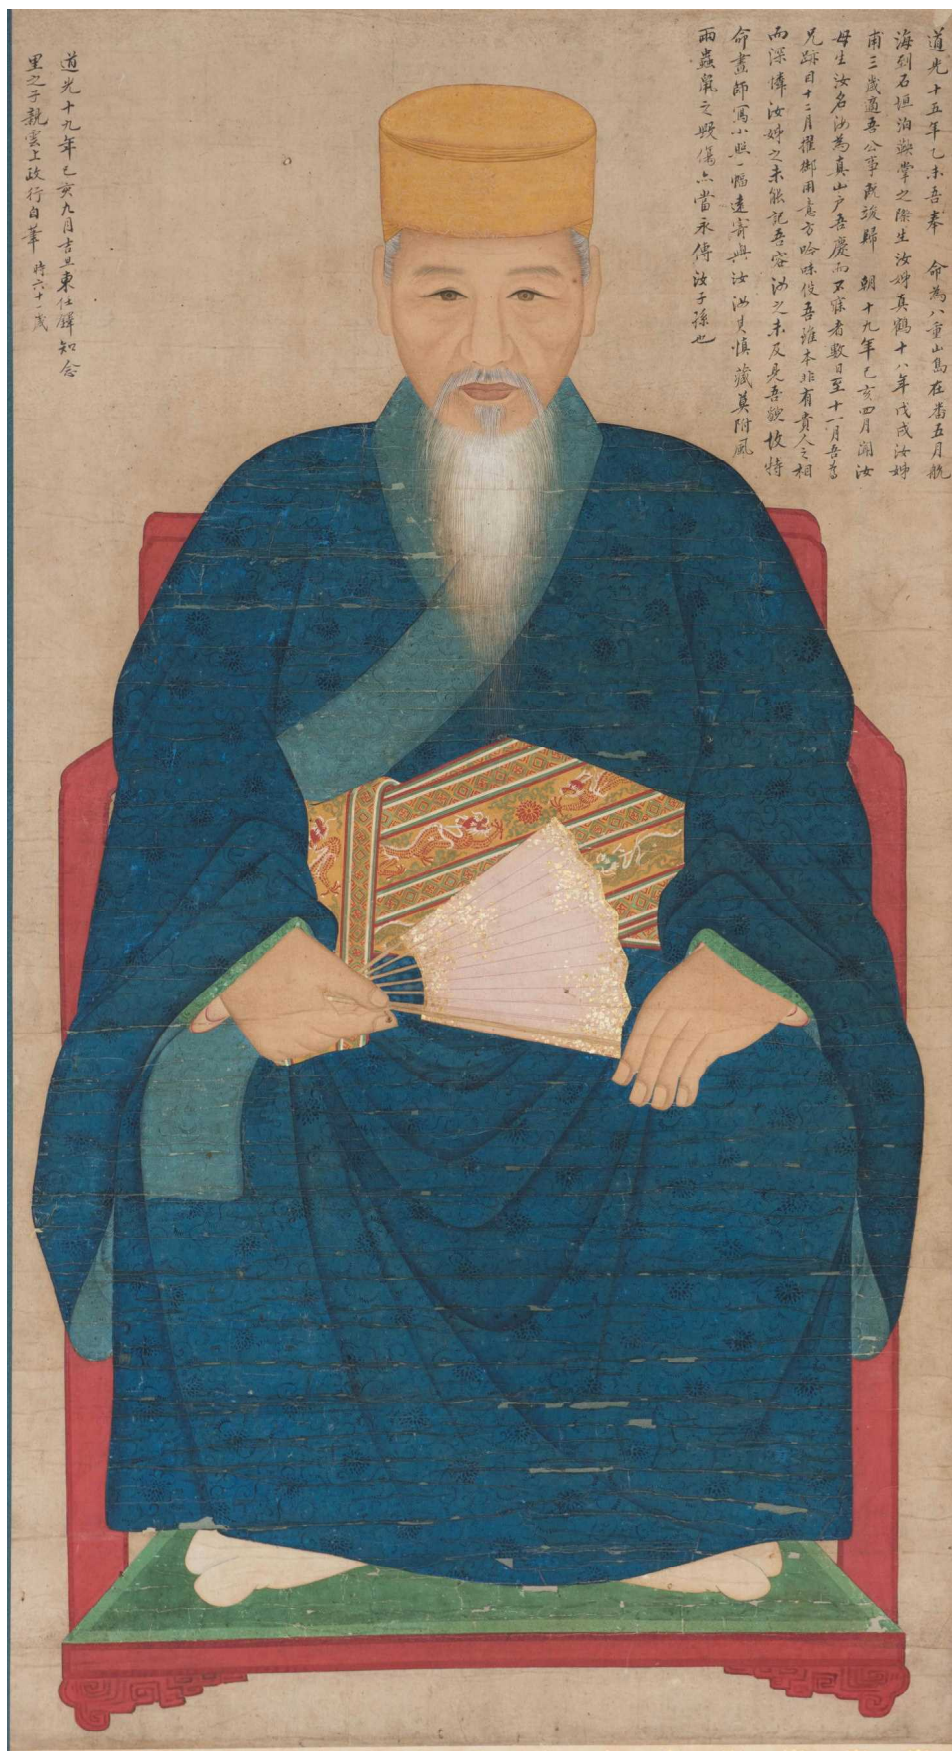 道光十五年乙未吾奉　命為八重山島在番五月航
海到石垣泊無掌之際生汝姊真鶴十八年戊戌汝姊
甫三歲適吾公事既竣歸　朝十九年己亥四月潮汝
母生汝名汝為真山戶吾慶而不寐者數日至十一月吾為
兄跡目十二月擢御用意方吟味役吾雖本非有貴人之相
而深憐汝姊之未能記吾容汝之未及見吾貌故特
命畫師寫小照一幅遠寄與汝汝其慎藏莫附風
雨蟲鼠之毀傷亦當永傳汝子孫也
道光十九年己亥九月吉旦東任鐸知念
里之子親雲上政行自筆　時六十一歲